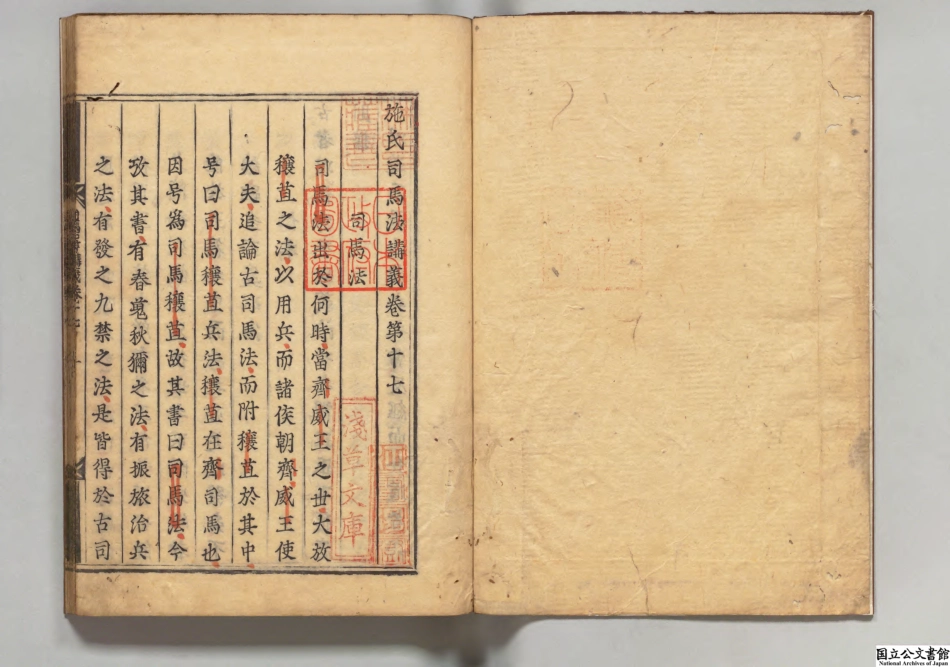 施氏司馬法講義卷第十七
司馬法
司馬法出於何時當齊威王之世大放
穰苴之法以用兵而諸侯朝齊威王使
大夫追論古司馬法而附穰苴於其中
号曰司馬穰苴兵法穰苴在齊司馬也
因号為司馬穰苴故其書曰司馬法今
攷其書有春蒐秋獮之法有振旅治兵
之法有發之九禁之法是皆得於古司
淺草文庫
日本政府圖書
国立公文書館
National Archives of Japan